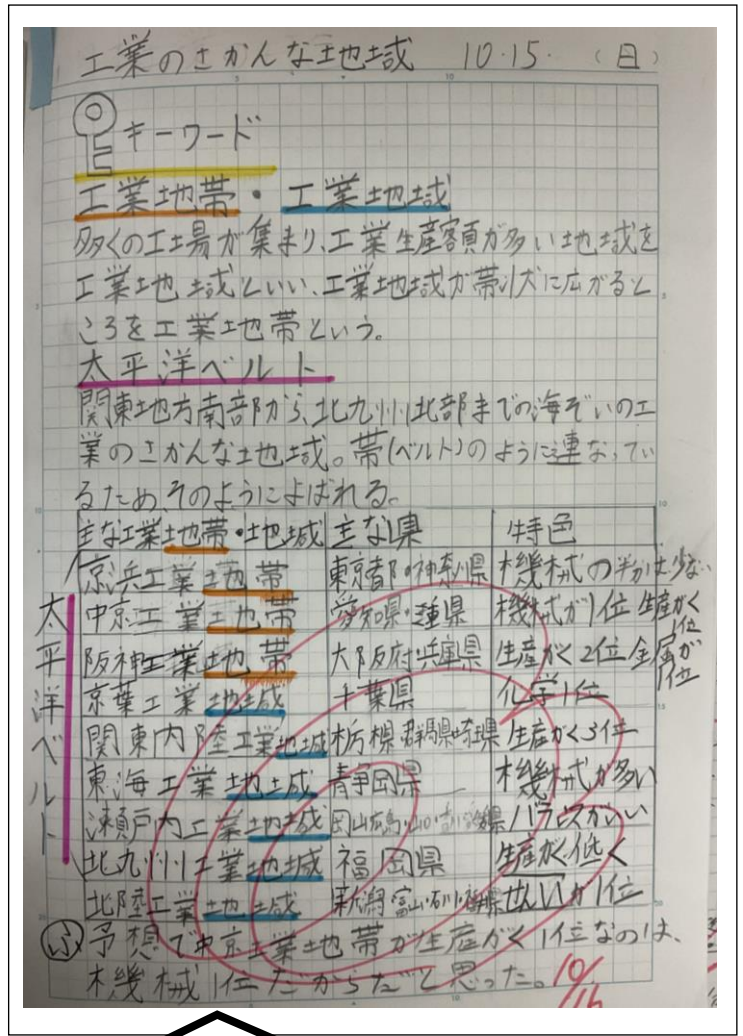 工業のさかんな地域 10.15.(日)
キーワード
工業地帯・工業地域
多くの工場が集まり、工業生産額が多い地域を
工業地域といい、工業地域が帯状に広がると
ころを工業地帯という。
太平洋ベルト
関東地方南部から、北九州北部までの海ぞいのエ
業のさかんな地域。帯(ベルト)のように連なってい
るため、そのようによばれる。
主な工業地帯・地域 主な県 特色
太平洋ベルト
京浜工業地帯 東京都・神奈川県 機械の半分は少ない
中京工業地帯 愛知県・三重県 機械が1位 生産がく1位
阪神工業地帯 大阪府・兵庫県 生産がく2位 金属が1位
京葉工業地域 千葉県 化学1位
関東内陸工業地域 栃木県 群馬県 埼玉県 生産がく3位
東海工業地域 静岡県 機械が多い
瀬戸内工業地域 岡山 広島 山口 香川 愛媛県 バランスがいい
北九州工業地域 福岡県 生産がく低く
北陸工業地域 新潟・富山・石川・福井県 せんいが1位
ふ 予想で中京工業地帯が生産がく1位なのは、
機械1位だからだと思った。
10/16